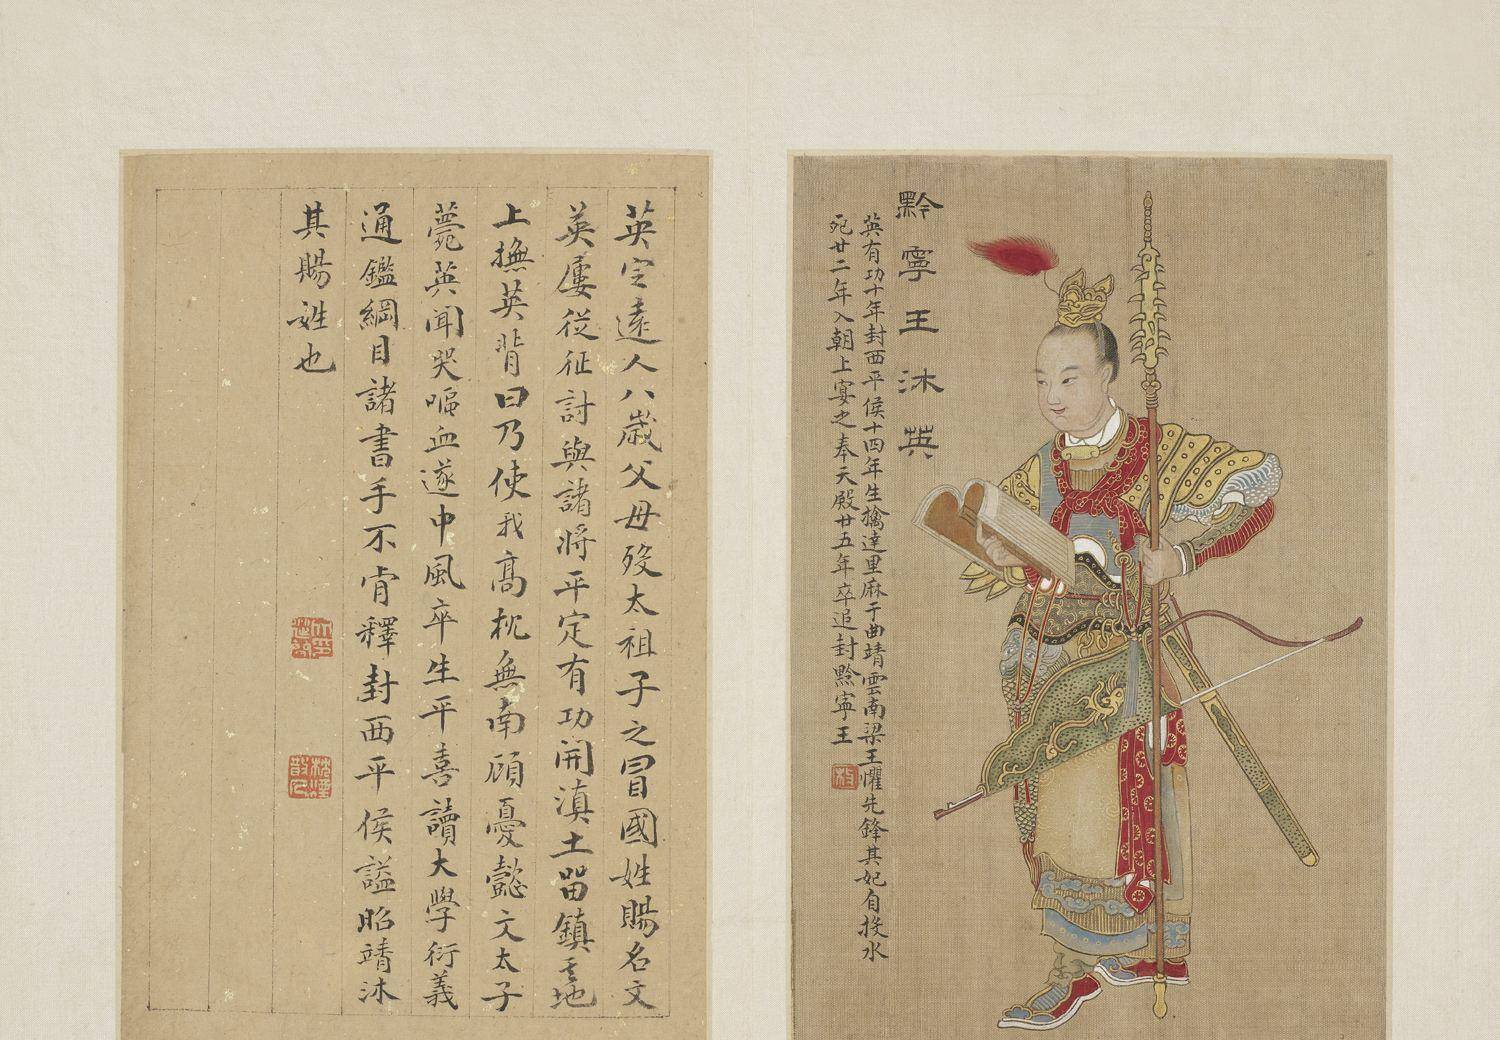 黔寧王沐英
英有功十年封西平侯十四年生擒達里麻于曲靖雲南梁王懼先鋒其妃自投水
死廿二年入朝上宴之奉天殿廿五年卒追封黔寧王
英定遠人八歲父母歿太祖子之冒國姓賜名文
英屢從征討與諸將平定有功開滇土留鎮其地
上撫英背曰乃使我高枕無南顧憂懿文太子
薨英聞哭嘔血遂中風卒生平喜讀大學衍義
通鑑綱目諸書手不肯釋封西平侯諡昭靖沐
其賜姓也